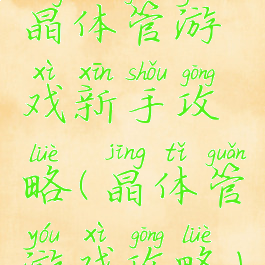 晶体管游
xì xīn shǒu gōng
戏新手攻
lüè jīng tǐ guǎn
略(晶体管
yóu xì gōng lüè
游戏攻略)